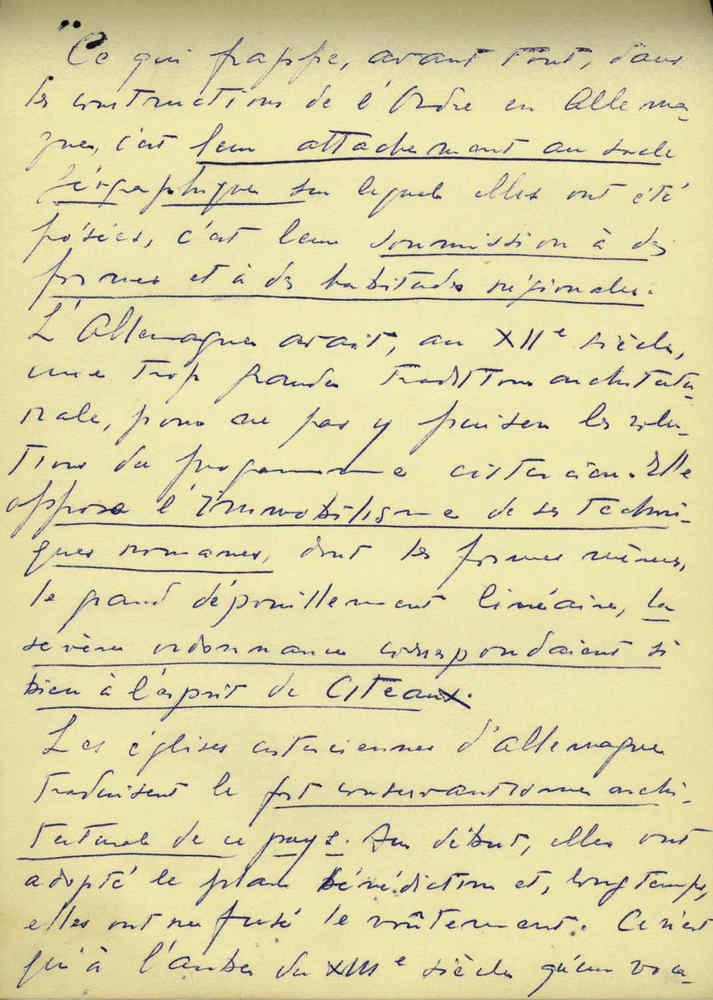 "Ce qui frappe, avant tout, dans
les constructions de l'Ordre en Allema-
gne, c'est leur attachement au socle
géographique sur lequel elles ont été
posées, c'est leur soumission à des
formes et à des habitudes régionales.
L'Allemagne avait, au XIIe siècle,
une trop grande tradition architectu-
rale, pour ne pas y puiser les solu-
tions du programme cistercien. Elle
oppose l'immobilisme de ses techni-
ques romanes, dont les formes mêmes,
le grand dépouillement linéaire, la
sévère ordonnance correspondaient si
bien à l'esprit de Citeaux.
Les églises cisterciennes d'Allemagne
traduisent le fort conservantisme archi-
tectural de ce pays. Au début, elles ont
adopté le plan bénédictin et, longtemps,
elles ont refusé le voûtement. Ce n'est
qu'à l'aube du XIIIe siècle qu'un voca-